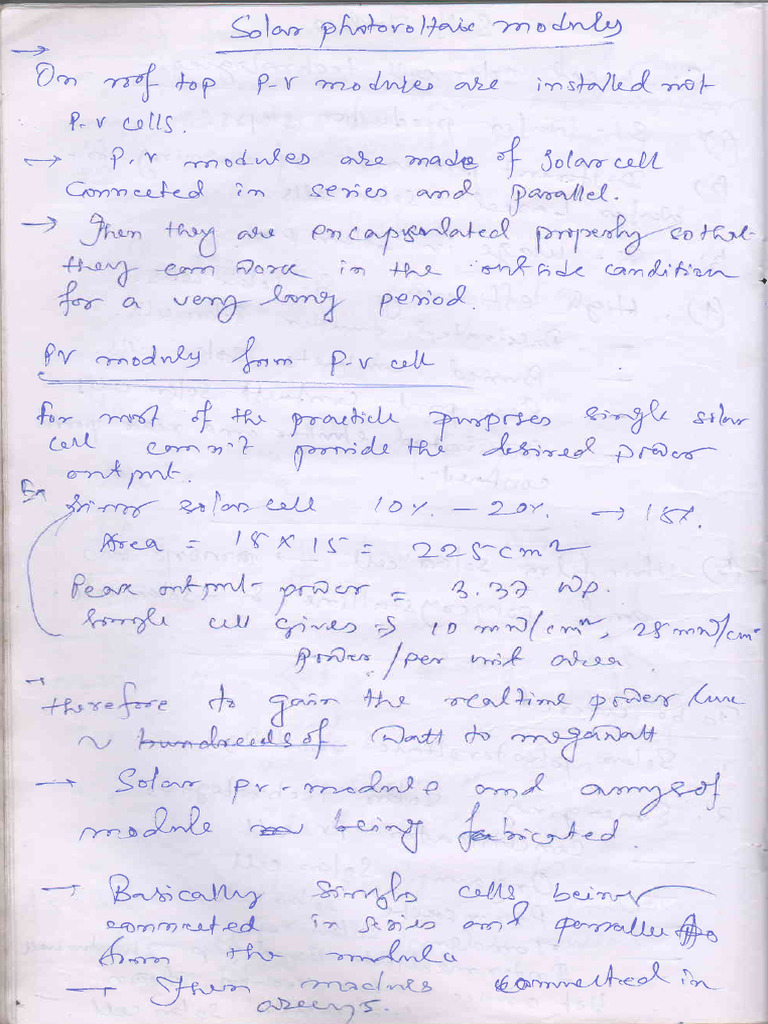 Solar photovoltaic modules
→
On roof top P-V modules are installed not
P-V cells.
→ P.V modules are made of solar cell
Connceted in series and parallel.
→ Then they are encapsulated properly so that
they can work in the outside candition
for a very long period.
PV modules from P-V cell
for most of the practicle purposes single solar
cell comn't provide the desired power
output.
Ex solar cell 10%. - 20%. → 18%.
Area = 15 × 15 = 225 cm2
Peak output-power = 3.37 Wp.
Single cell gives ⇒ 10 mW/cm2, 25 mW/cm2
Power/per unit area.
→
therefore to gain the realtime power
~ hundreeds of Watt to megawatt
→ Solar pv-module and arrays of
module being fabricated.
→ Basically single cells being
connceted in series and parallel to
form the module
→ Then modules connected in
areeys.